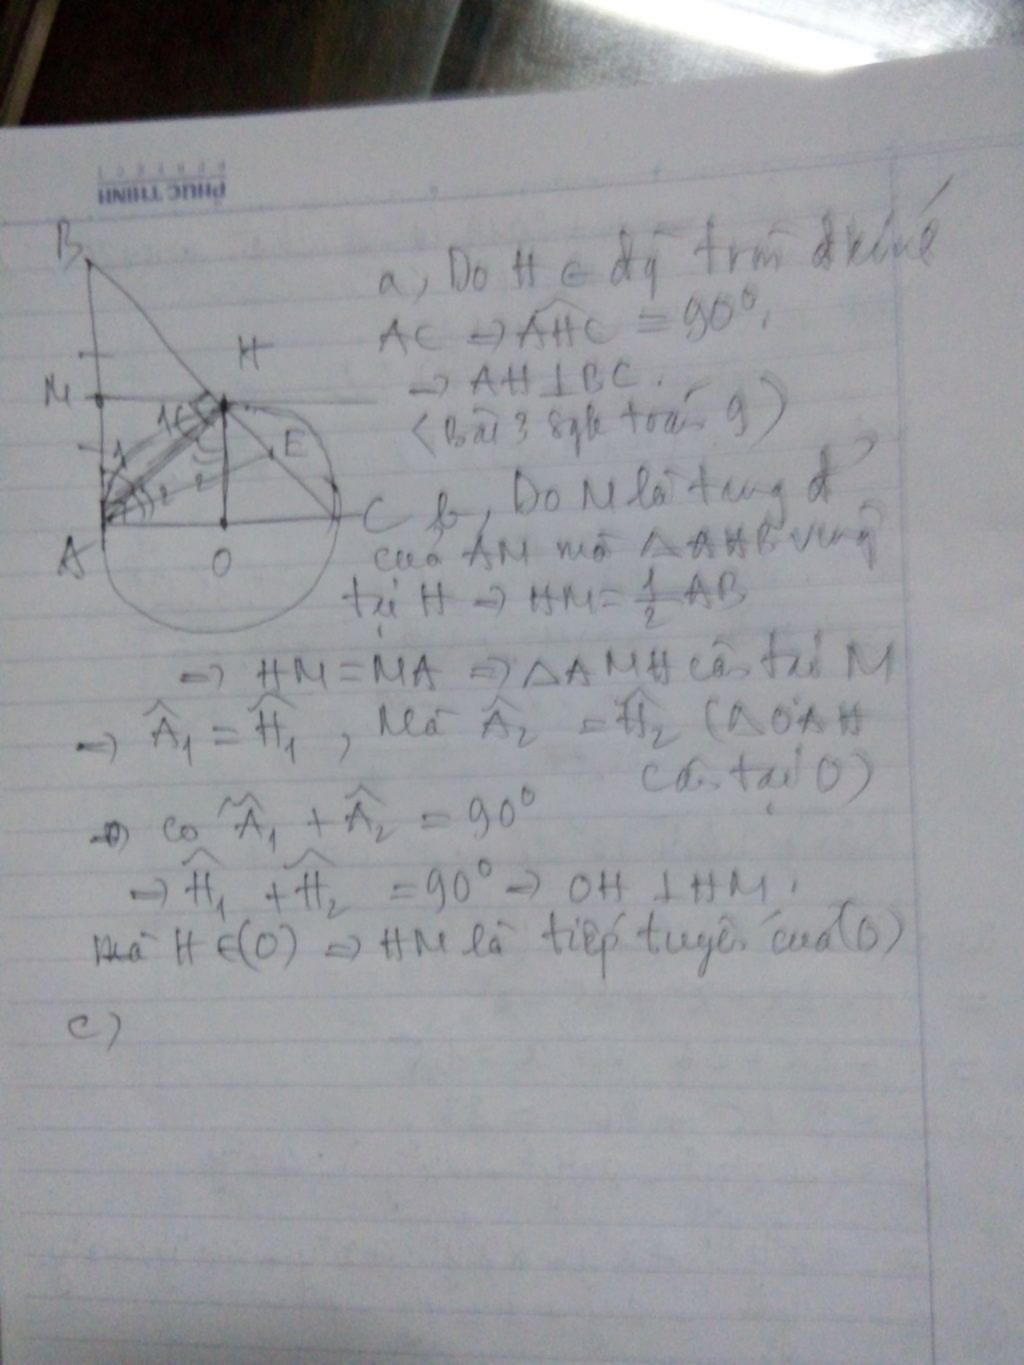 PHUC THINH
PERFECT
B
H
M
1
1
E
2
2
A
O
C
a, Do H ∈ đg̃ tròn đkính
AC => AHC = 90°,
=> AH ⊥ BC.
(Bài 3 sgk toán 9)
b, Do M là trung đ'
của AM mà △AHB vuông
tại H => HM = 1/2 AB
=> HM = MA => △AMH cân tại M
=> Â1 = Ĥ1, Mà Â2 = Ĥ2 (△OAH
cân tại O)
=> có Â1 + Â2 = 90°
=> Ĥ1 + Ĥ2 = 90° => OH ⊥ HM,
mà H ∈ (O) => HM là tiếp tuyến của (O)
c)